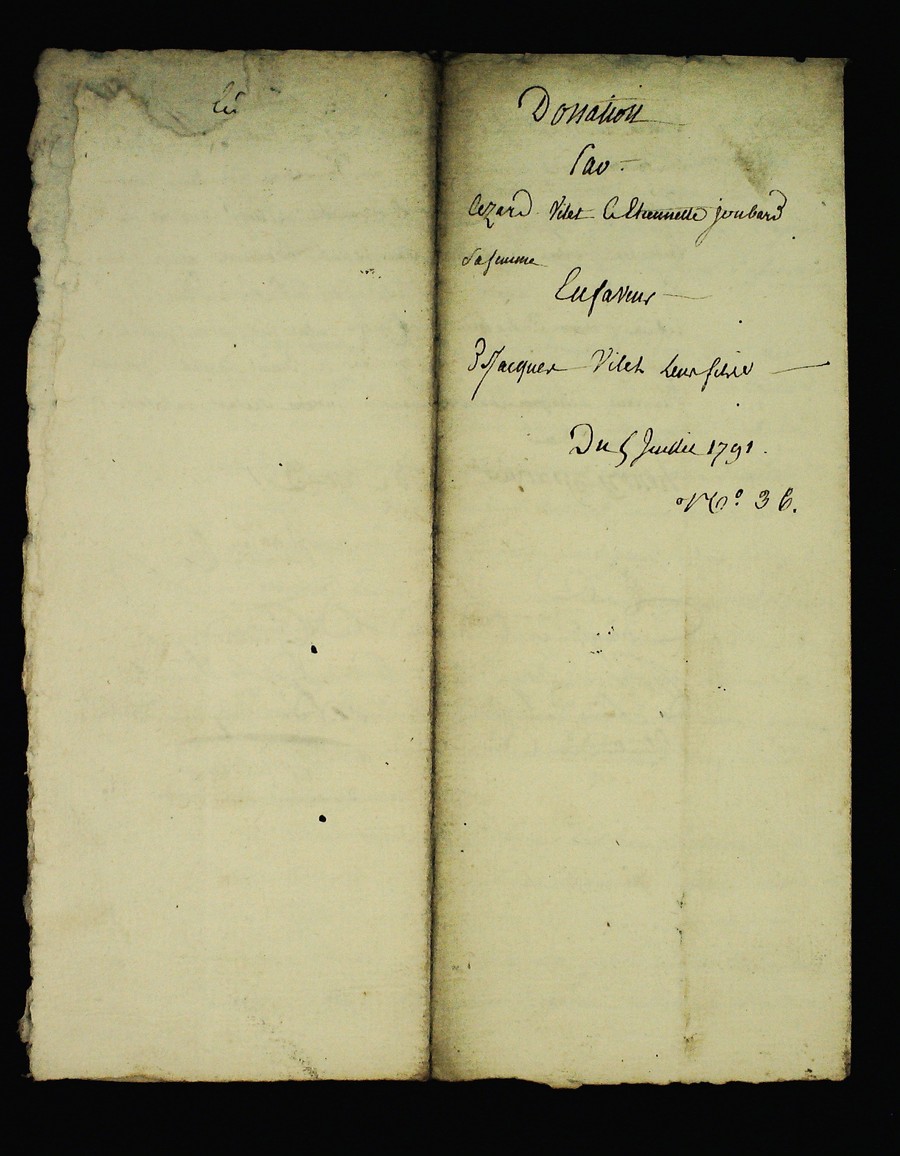 lu
Donation
Par
Cezard Vilet & Etiennette joubard
Sa femme
En faveur
De Jacques Vilet leur fils
Du 5 Juillet 1791.
N.º 36.